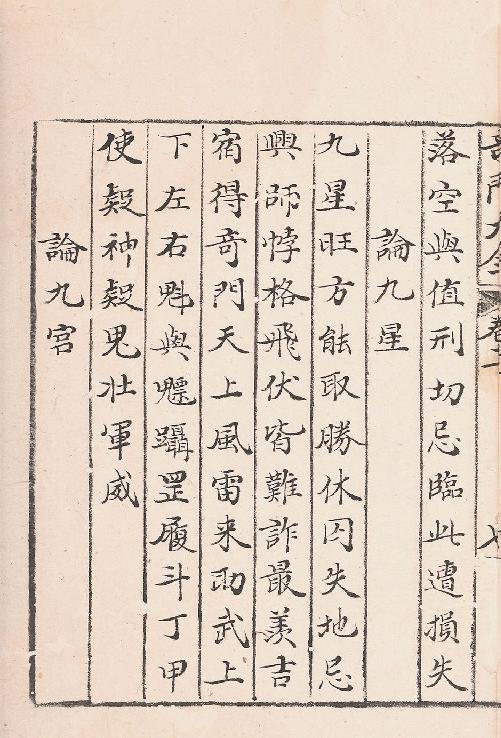 落空與值刑切忌臨此遭損失
論九星
九星旺方能取勝休囚失地忌
興師悖格飛伏皆難詐最羨吉
宿得奇門天上風雷来助武上
下左右魁與魒躡罡履斗丁甲
使疑神疑鬼壯軍威
論九宮